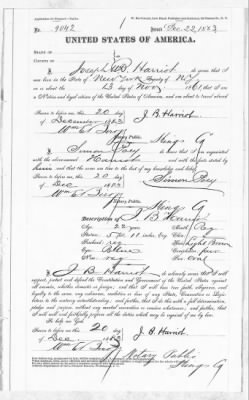 No. 9042 Issued Dec. 22, 1883
UNITED STATES OF AMERICA.
STATE OF
COUNTY OF
I, Joseph B. Harriot, do swear that I
was born in the State of New York County of N.Y.
on or about the 13 day of Nov. 1861 that I am
a Native and loyal citizen of the United States of America, and am about to travel abroad
Sworn to before me this 20 day
of December 1883
J. B. Harriot
Notary Public.
I, Simon do swear that I am acquainted
with the above-named Harriot and with the facts stated by
him and that the same are true to the best of my knowledge and belief.
Sworn to before me this 20 day
of Dec 1883
Simon
Notary Public.
Description of J. B. Harriot
Age: 22 years
Stature: 5 ft. inches, Eng.
Forehead: reg
Eyes: Blue
Nose: reg
Mouth: Reg
Hair: Light Brown
Face: Oval
I, J. B. Harriot, do solemnly swear that I will
support, protect and defend the Constitution and Government of the United States against
all enemies, whether domestic or foreign; and that I will bear true faith, allegiance, and
loyalty to the same, any ordinance, resolution or law of any State, Convention or Legislature
to the contrary notwithstanding; and further, that I do this with a full determination,
pledge and purpose, without any mental reservation or evasion whatsoever; and further, that
I will well and faithfully perform all the duties which may be required of me by law.
So help me God.
Sworn to before me this 20 day
of Dec. 1883
J. B. Harriot
Notary Public